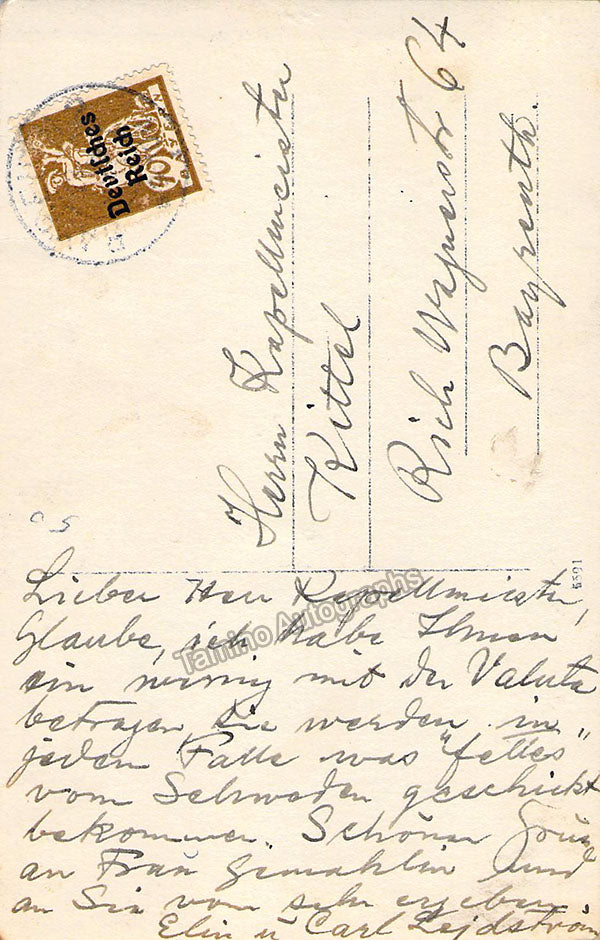 Deutsches
Reich
40
BAYERN
Herrn Kapellmeister
Kittel
Rich Wagnerstr 64
Bayreuth.
5591
Lieber Herr Kapellmeister,
Glaube, ich habe Ihnen
ein wenig mit der Valuta
betrogen, Sie werden in
jeden Falle was "fettes"
vom Schweden geschickt
bekommen. Schöner Gruss
an Frau Gemahlin und
an Sie vom sehr ergeben
Elin u Carl Lejdström
Tamino Autographs